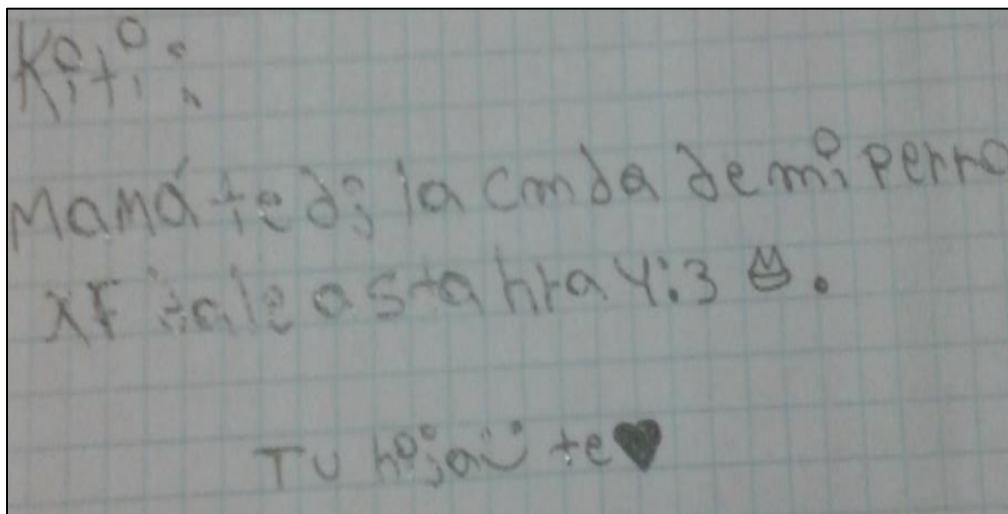 Kiti:
Mamá te di la cmda de mi perro
XF asta hra y:3
Tu hija te